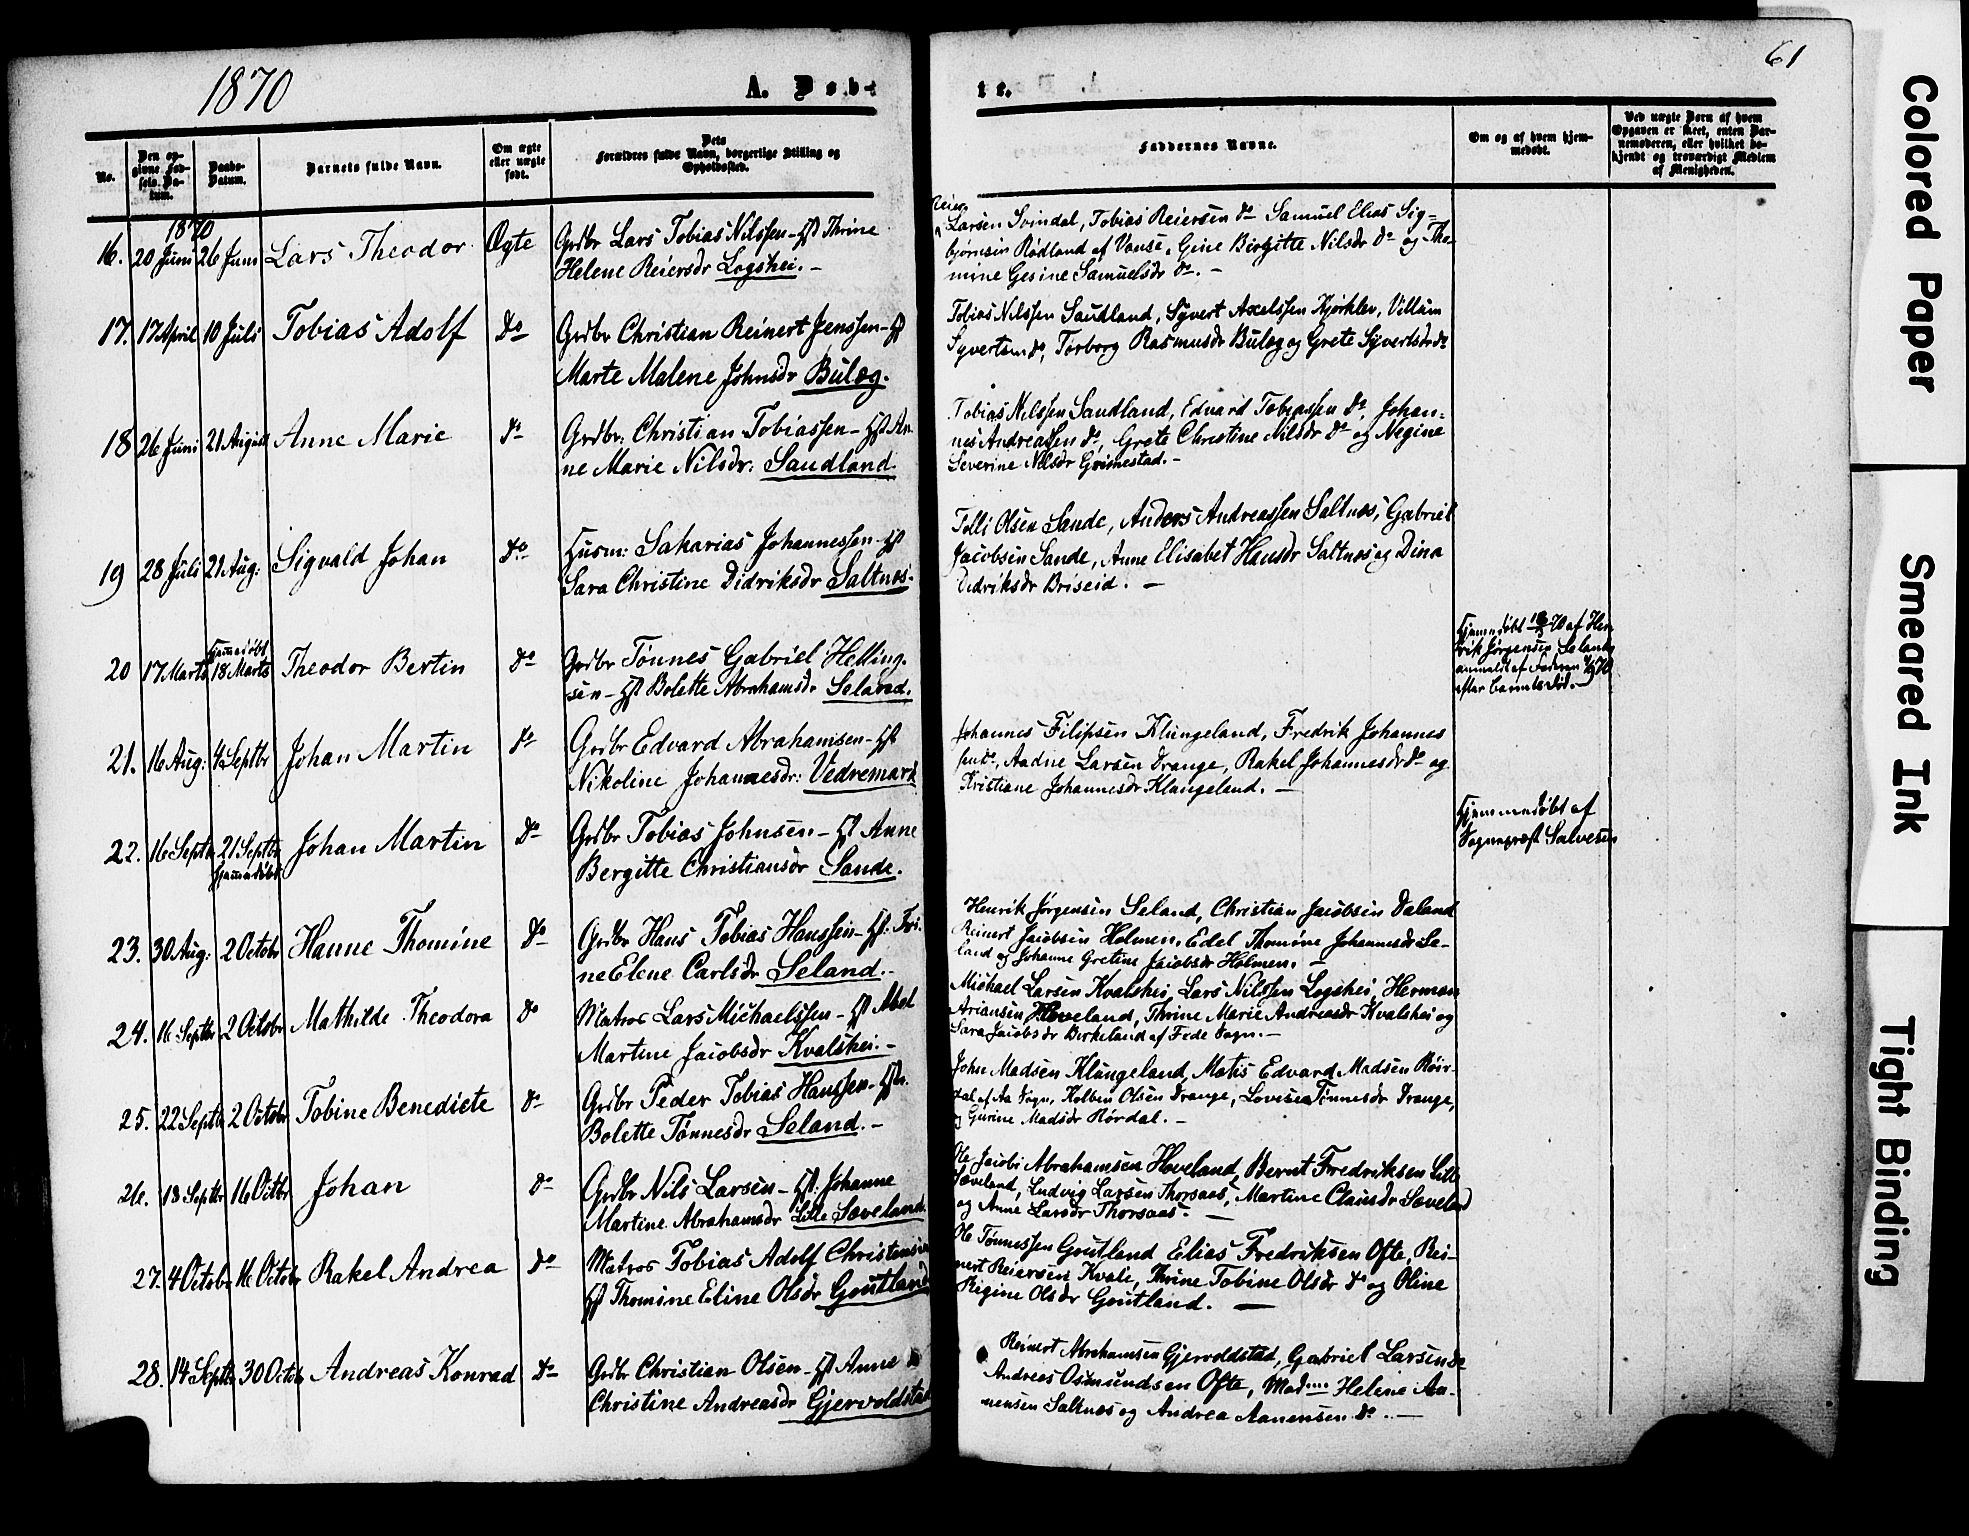 1870
A. Døb-
te.
61
No.
Den op-
givne Fød-
sels Da-
tum.
Daabs-
Datum.
Barnets fulde Navn.
Om ægte
eller uægte
født.
Dets
Forældres fulde Navn, borgerlige Stilling og
Opholdssted.
Faddernes Navne.
Om og af hvem hjem-
medøbt.
Ved uægte Børn af hvem
Opgaven er skeet, enten Bar-
nemoderen, eller hvilket be-
kjendt og troværdigt Medlem
af Menigheden.
1870
16. 20 Juni 26 Juni Lars Theodor Ægte Grdbr Lars Tobias Nilssen - Hst Thrine
Helene Reiersdr Logshei. -
Reier
Larsen Svindal, Tobias Reiersen do Samuel Elias Sig=
bjørnsen Rødland af Vanse, Gine Birgitte Nilsdr do og Tho-
mine Gesine Samuelsdr do. -
17. 17 April 10 Juli Tobias Adolf do Grdbr Christian Reinert Jenssen - Hst
Marte Malene Johnsdr Bulæg.
Tobias Nilssen Saudland, Syvert Axelssen Kjørklev, Villum
Syvertsen do, Torborg Rasmusdr Bulæg og Grete Syvertsdr do
18 26 Juni 21 August Anne Marie do Grdbr: Christian Tobiassen - Hst An
ne Marie Nilsdr: Saudland.
Tobias Nilssen Saudland, Edvard Tobiassen do, Johan=
nes Andreassen do, Grete Christine Nilsdr do og Negine
Severine Nilsdr Grimestad. -
19 28 Juli 21 Aug: Sigvald Johan do Husm: Sakarias Johannessen - Hst
Sara Christine Didriksdr Saltnes.
Tolli Olsen Sande, Anders Andreassen Saltnes, Gabriel
Jacobsen Sande, Anne Elisabet Hansdr Saltnes og Dina
Didriksdr Briseid. -
20 17 Marts Hjemmedøbt
18 Marts Theodor Bertin do Grdbr Tønnes Gabriel Helling-
sen - Hst Bolette Abrahamsdr Seland.
Hjemmedøbt 18/3 70 af Hen
rik Jørgensen Seland,
anmeldt af Faderen
efter barnets død. -
21. 16 Aug: 4 Septbr Johan Martin do Grdbr Edvard Abrahamsen - Hst
Nikoline Johannesdr: Vedremark
Johannes Filipsen Klungeland, Fredrik Johannes
sen do, Aadne Larsen Drange, Rakel Johannesdr do og
Kristiane Johannesdr Klungeland. -
22. 16 Septbr 21 Septbr
Hjemmedøbt Johan Martin do Grdbr Tobias Johnsen - Hst Anne
Bergitte Christiansdr Sande.
Hjemmedøbt af
Sognepræst Salvesen
23. 30 Aug: 2 Octobr Hanne Thomine do Grdbr Hans Tobias Hanssen - Hst: Tri-
ne Elene Carlsdr Seland. -
Henrik Jørgensen Seland, Christian Jacobsen Daland
Reinert Jacobsen Holmen, Edel Thomine Johannesdr Se-
land og Johanne Gretine Jacobsdr Holmen. -
24. 16 Septbr 2 Octobr Mathilde Theodora do Matros Lars Michaelssen - Hst Abel
Martine Jacobsdr Kvalshei. -
Michael Larsen Kvalshei, Lars Nilssen Logshei, Herman
Ariansen Hoveland, Thrine Marie Andreasdr Kvalshei og
Sara Jacobsdr Birkeland af Fede Sogn. -
25. 22 Septbr 2 Octobr Tobine Benedicte do Grdbr Peder Tobias Hanssen - Hst
Bolette Tønnesdr Seland. -
John Madsen Klungeland, Matis Edvard Madsen Røir-
dal af Aa Sogn, Kolben Olsen Drange, Lovise Tønnesdr Drange,
og Gurine Madsdr Rørdal. -
26. 13 Septbr 16 Octbr Johan do Grdbr Nils Larsen - Hst Johanne
Martine Abrahamsdr Lille Sæveland.
Ole Jacob Abrahamsen Hoveland, Bernt Fredriksen Lille
Sæveland, Ludvig Larsen Thorsaas, Martine Clausdr Sæveland
og Anne Larsdr Thorsaas. -
27. 4 Octobr 16 Octobr Rakel Andrea do Matros Tobias Adolf Christensen
Hst Thomine Eline Olsdr Goutland
Ole Tønnessen Goutland Elias Fredriksen Ofte, Rei-
nert Reiersen Kvale, Thrine Tobine Olsdr do og Oline
Regine Olsdr Goutland. -
28. 14 Septbr 30 Octobr Andreas Konrad do Grdbr Christian Olsen - Hst Anne
Christine Andreasdr Gjervoldstad
Reinert Abrahamsen Gjervoldstad, Gabriel Larsen do
Andreas Osmundsen Ofte, Mad.... Helene Aa-
nensen Saltnes og Andrea Aanensen do. -
Colored Paper
Smeared Ink
Tight Binding